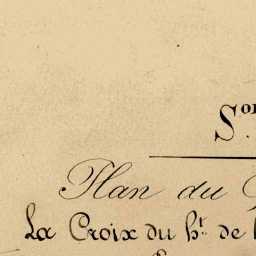 Son
Plan du
La Croix du ht. de